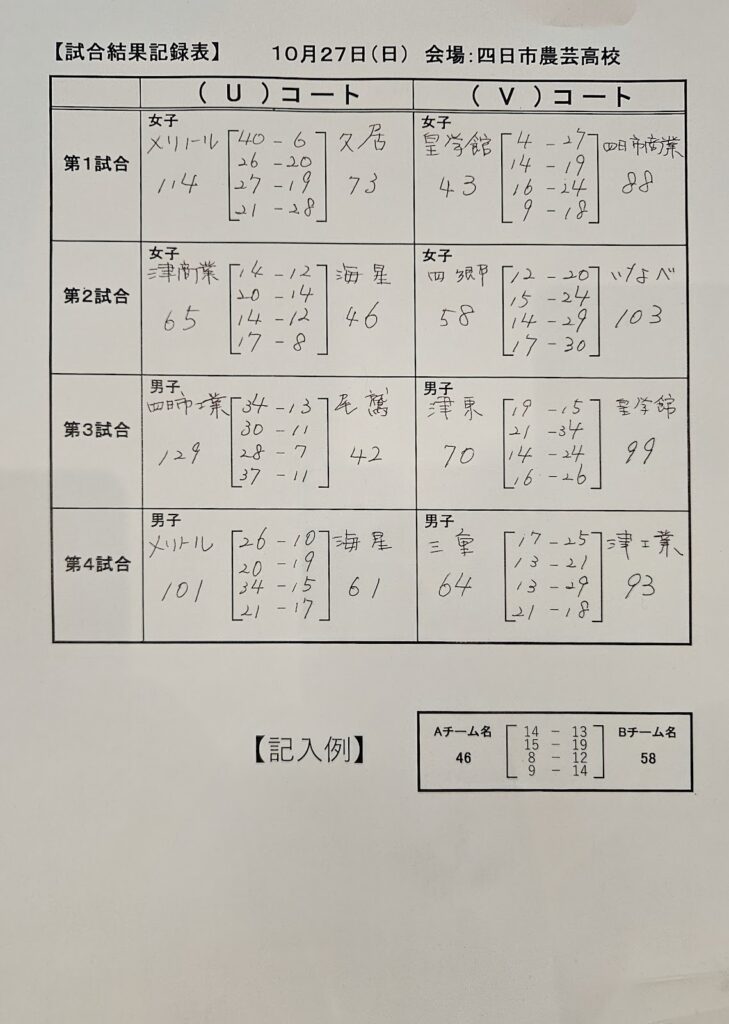 【試合結果記録表】 10月27日(日) 会場:四日市農芸高校
(U)コート (V)コート
第1試合
女子
メリノール 40-6 久居
26-20
114 27-19 73
21-28
女子
皇学館 4-27 四日市商業
14-19
43 16-24 88
9-18
第2試合
女子
津商業 14-12 海星
20-14
65 14-12 46
17-8
女子
四郷 12-20 いなべ
15-24
58 14-29 103
17-30
第3試合
男子
四日市工業 34-13 尾鷲
30-11
129 28-7 42
37-11
男子
津東 19-15 皇学館
21-34
70 14-24 99
16-26
第4試合
男子
メリノール 26-10 海星
20-19
101 34-15 61
21-17
男子
三重 17-25 津工業
13-21
64 13-29 93
21-18
【記入例】
Aチーム名 14-13 Bチーム名
15-19
46 8-12 58
9-14